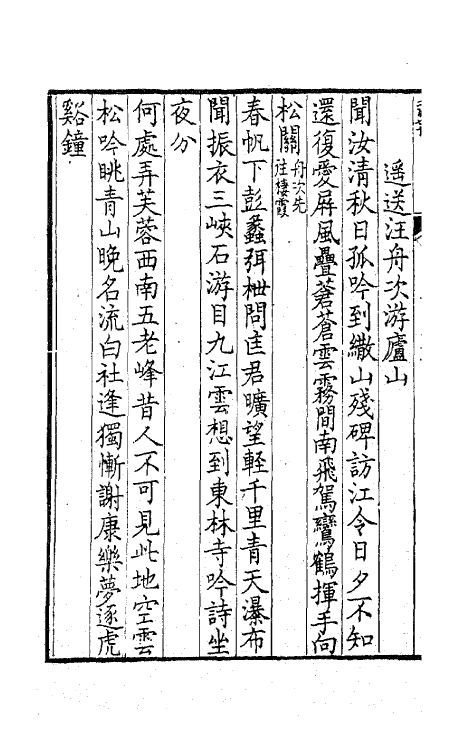 遥送汪舟次游廬山
聞汝清秋日孤吟到繖山殘碑訪江令日夕不知
還復愛屏風疊蒼蒼雲霧間南飛駕鸞鶴揮手向
松關舟次先往棲霞
春帆下彭蠡弭枻問匡君曠望輕千里青天瀑布
聞振衣三峽石游目九江雲想到東林寺吟詩坐
夜分
何處弄芙蓉西南五老峰昔人不可見此地空雲
松吟眺青山晚名流白社逢獨慚謝康樂夢逐虎
谿鐘